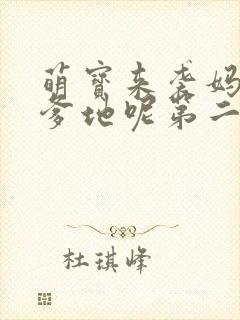 萌宝来袭妈
爹地呢第二
杜琪峰